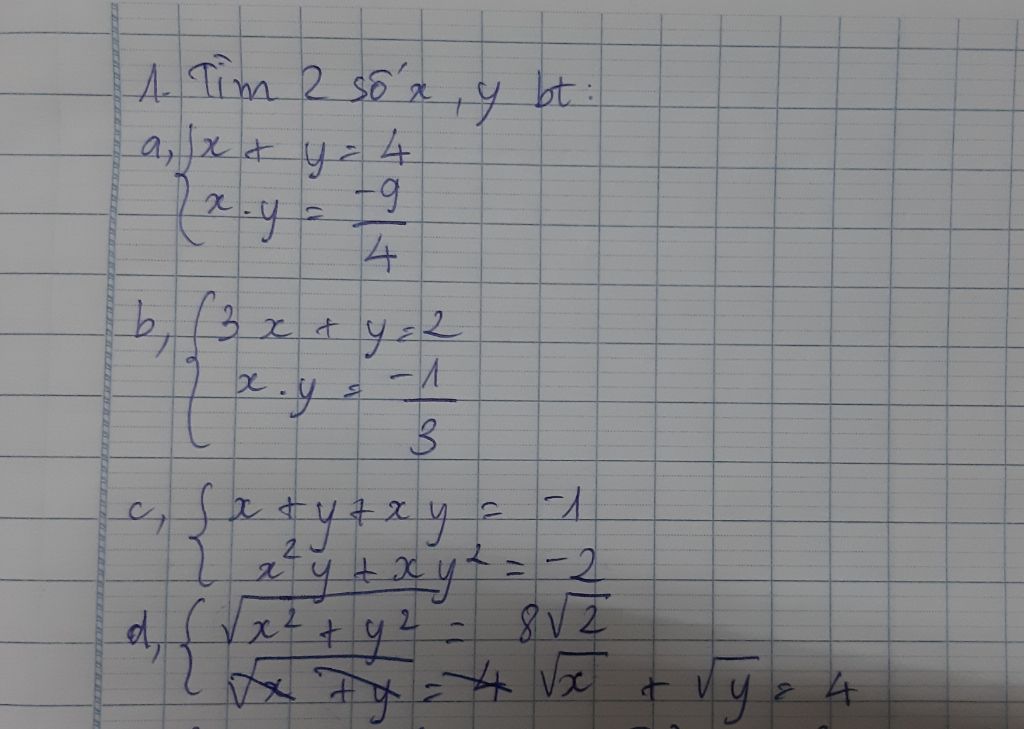 1. Tìm 2 số x, y bt:
a, { x + y = 4
x . y = -9/4
b, { 3x + y = 2
x . y = -1/3
c, { x + y + xy = -1
x²y + xy² = -2
d, { √(x² + y²) = 8√2
√x + √y = 4